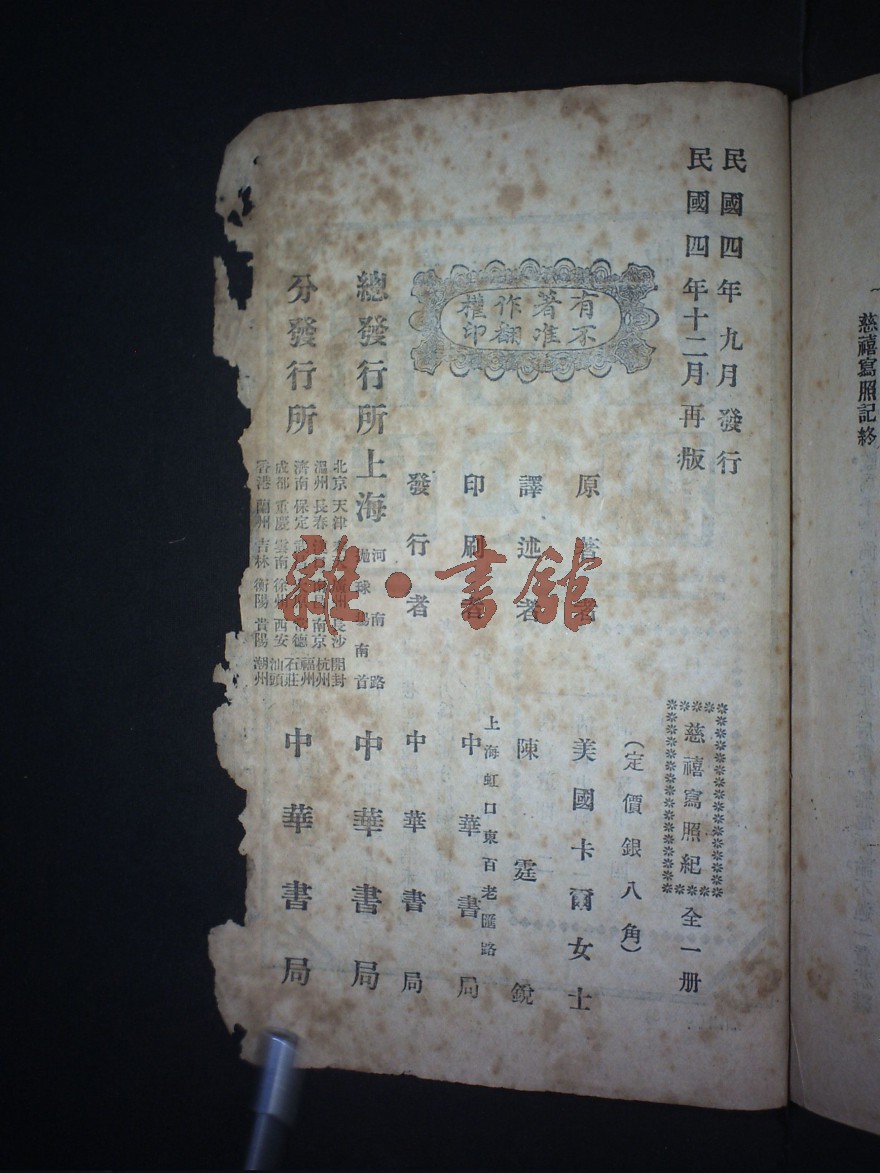 慈禧寫照記終
民國四年九月發行
民國四年十二月再版
有不
著准
作翻
權印
慈禧寫照紀
全一册
(定價銀八角)
原著者 美國卡爾女士
譯述者 陳霆銳
印刷者 上海虹口東百老匯路 中華書局
發行者 中華書局
總發行所 上海 河南路 拋球場南首 中華書局
分發行所
北京 天津 長沙 開封
溫州 長春 南京 杭州
濟南 保定 常德 福州
成都 重慶 雲南 徐州 西安 石莊 汕頭
香港 蘭州 吉林 衡陽 貴陽 潮州
中華書局
雜·書館